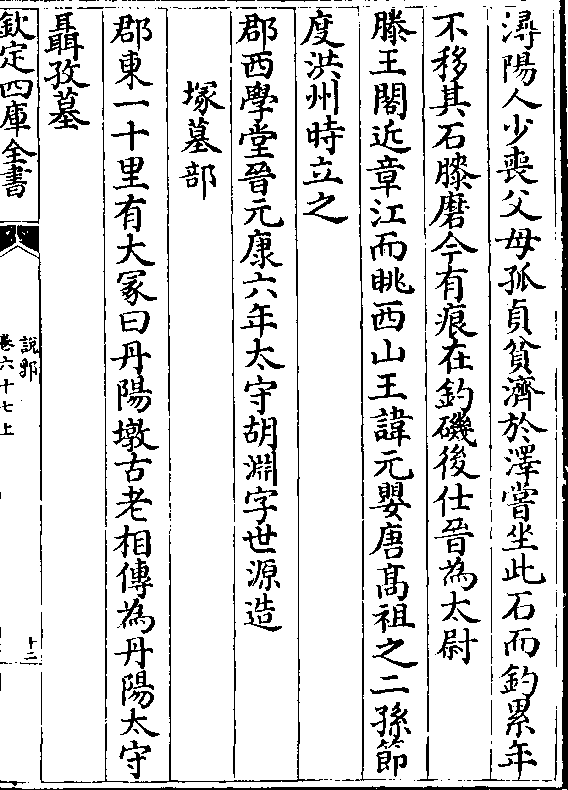 潯陽人少喪父母孤貞貧濟於澤嘗坐此石而釣累年
不移其石膝磨今有痕在釣磯後仕晉為太尉
滕王閣近章江而眺西山王諱元嬰唐髙祖之二孫節
度洪州時立之
郡西學堂晉元康六年太守胡淵字世源造
塚墓部
郡東一十里有大冢曰丹陽墩古老相傳為丹陽太守
聶孜墓
欽定四庫全書
說郛
卷六十七上
十二